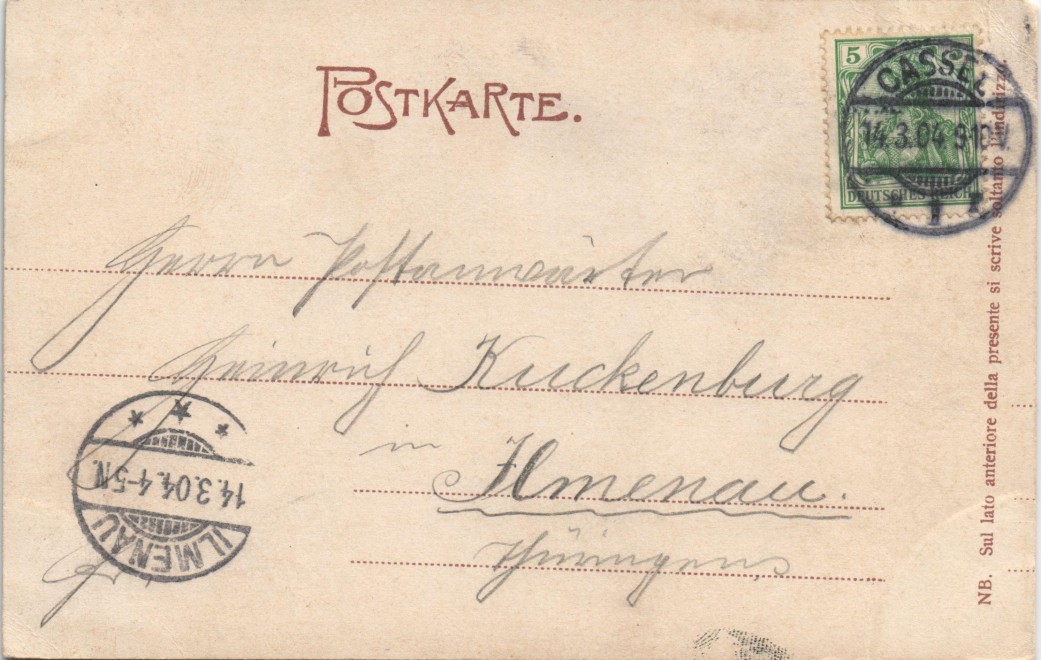 POSTKARTE.
5
DEUTSCHES REICH
CASSEL
14.3.04 9-10V
1
Herrn Postanwärter
Heinrich Kuckenburg
in
Ilmenau.
Thüringen
ILMENAU
14.3.04. 4-5N
NB. Sul lato anteriore della presente si scrive soltanto l'indirizzo.